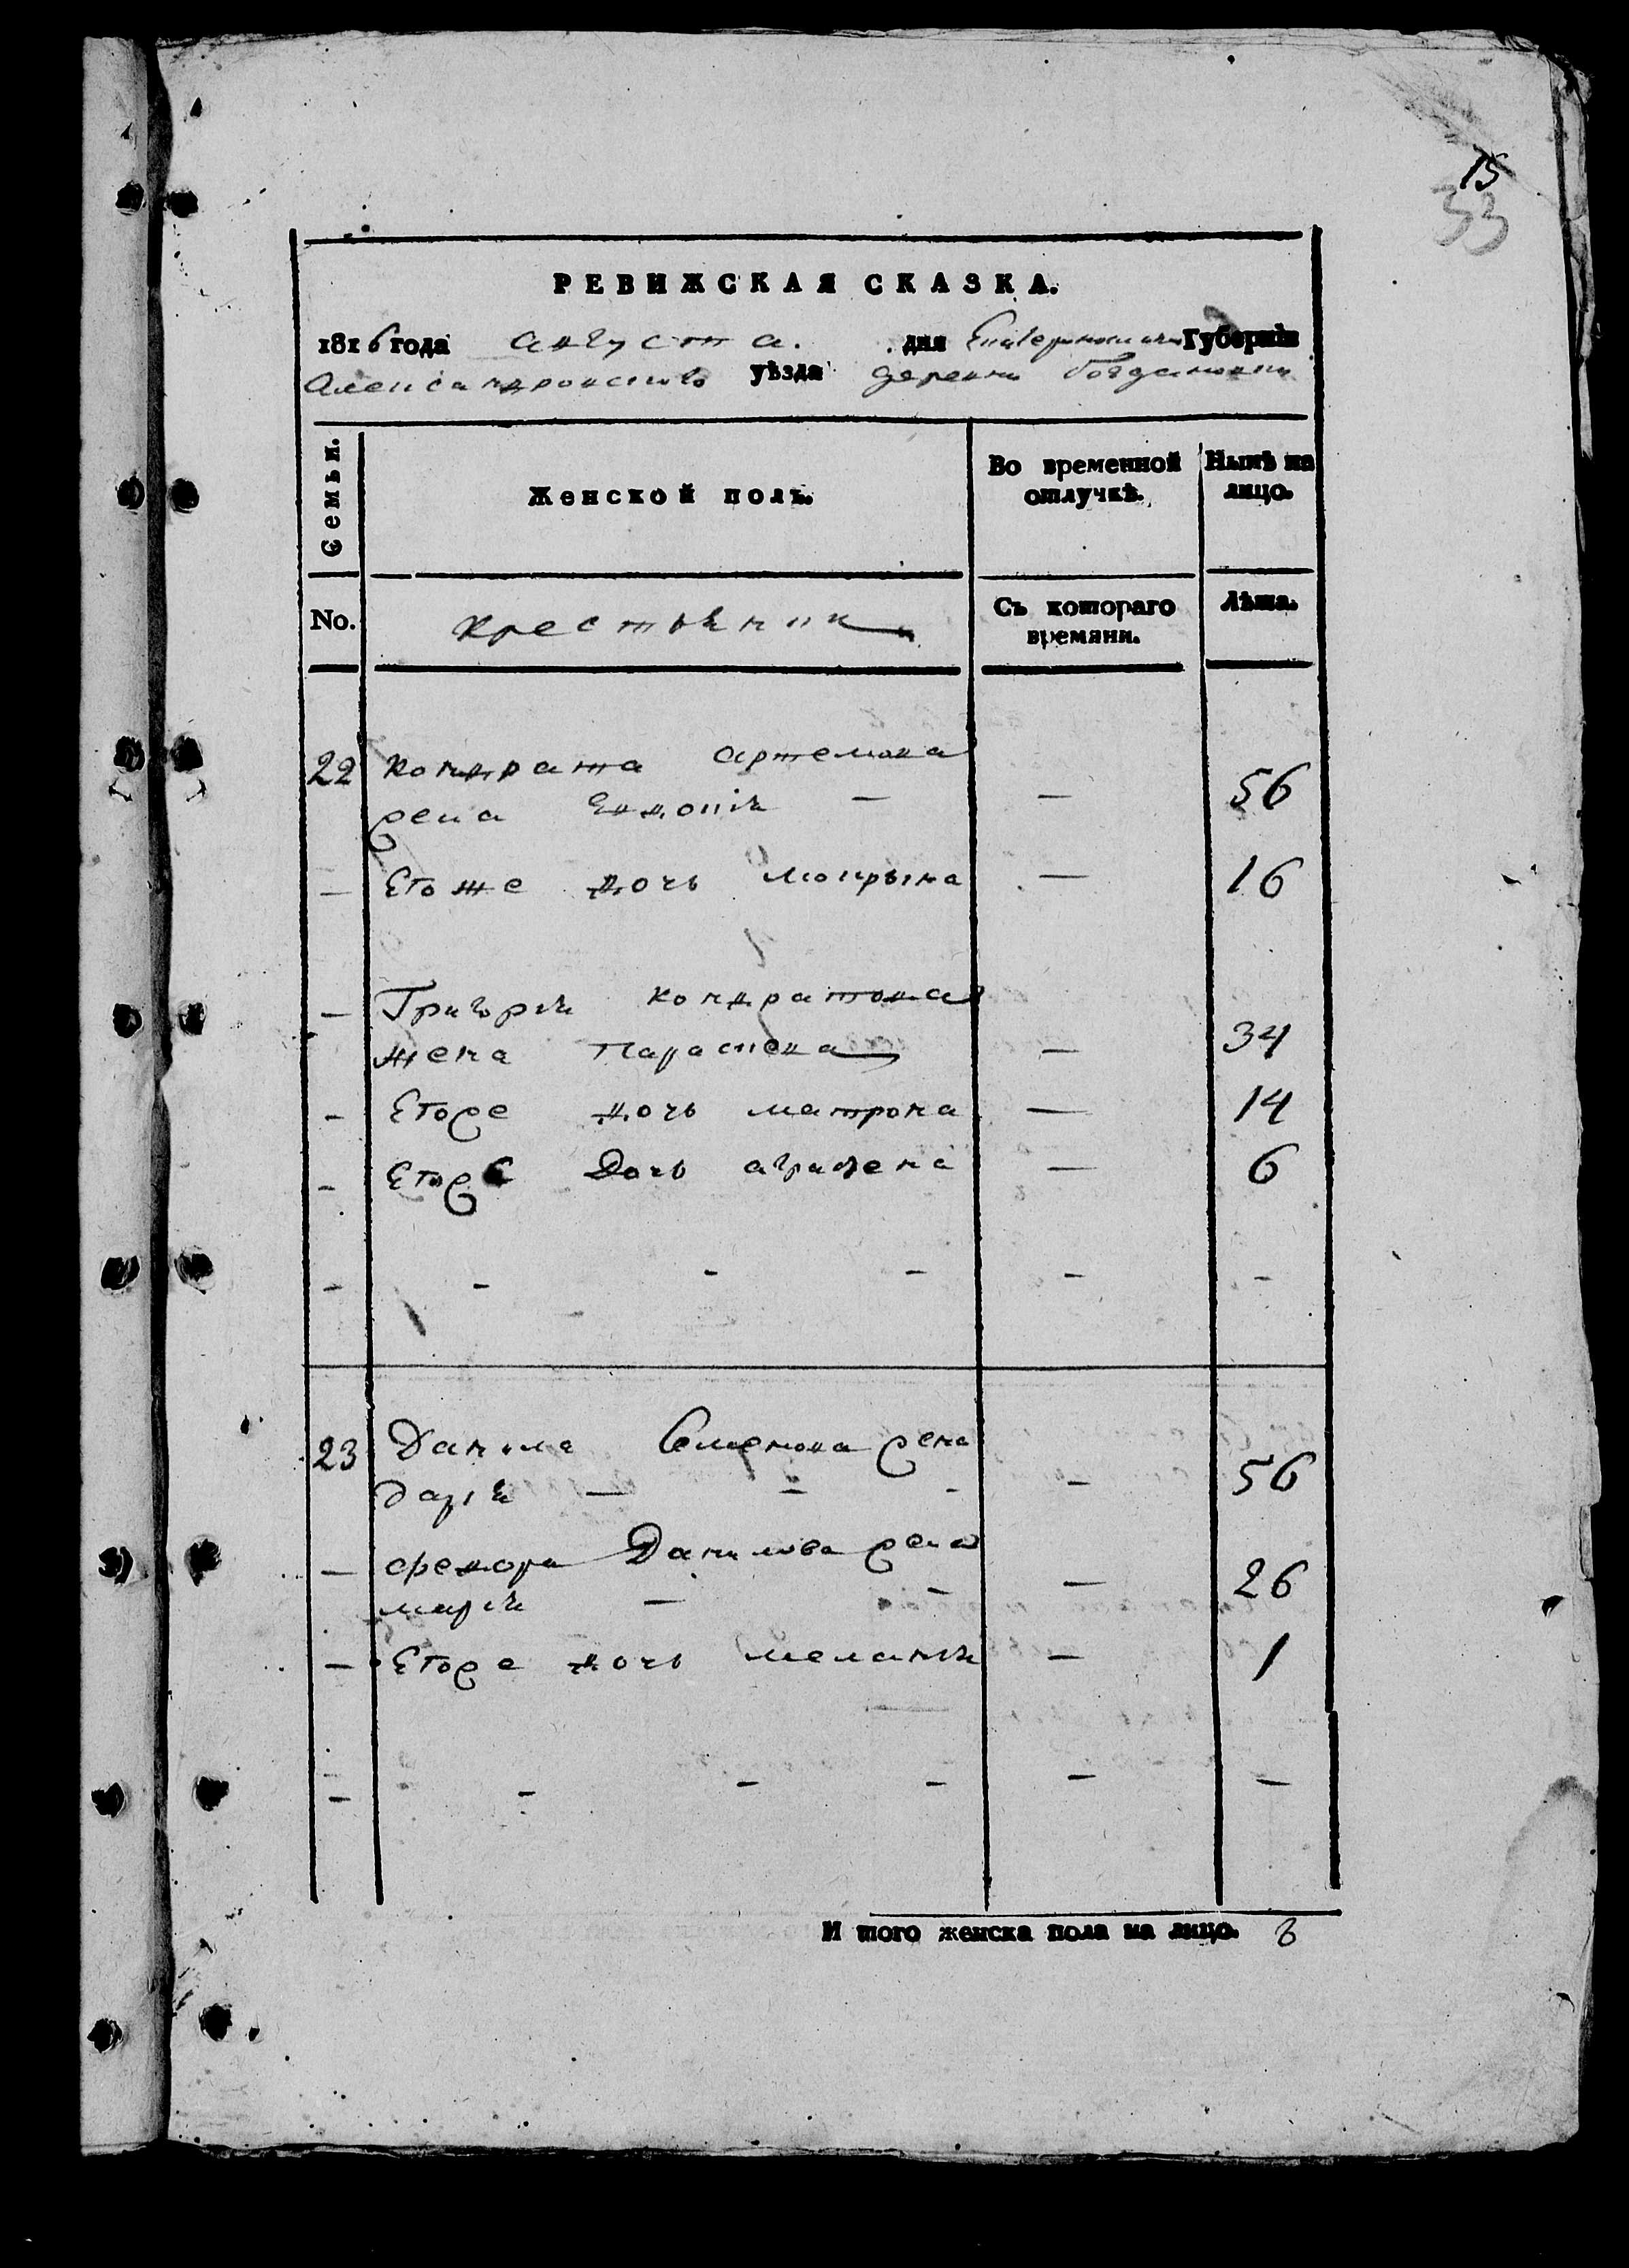 15
53
РЕВИЖСКАЯ СКАЗКА.
1816 года августа. дня Екатеринославской Губернїи
Александровского уѣзда деревни Богдановки
Семьи.
Женской полъ.
Во временной отлучкѣ.
Нынѣ на лицо.
No.
крестьянки
Съ котораго времяни.
Лѣта.
22 кондрата артемова
жена Евдокія — — 56
— Егоже дочь мокрына — 16
— Григорія кондратова
жена Параскева — 34
— Егоже дочь матрона — 14
— Егоже Дочь аграфена — 6
— - - - - -
23 Данила Семенова жена
дарія — - - - 56
— федора Данилова жена
марія — - — 26
— Егоже дочь меланія — 1
— - - - — —
И того женска пола на лицо. 8